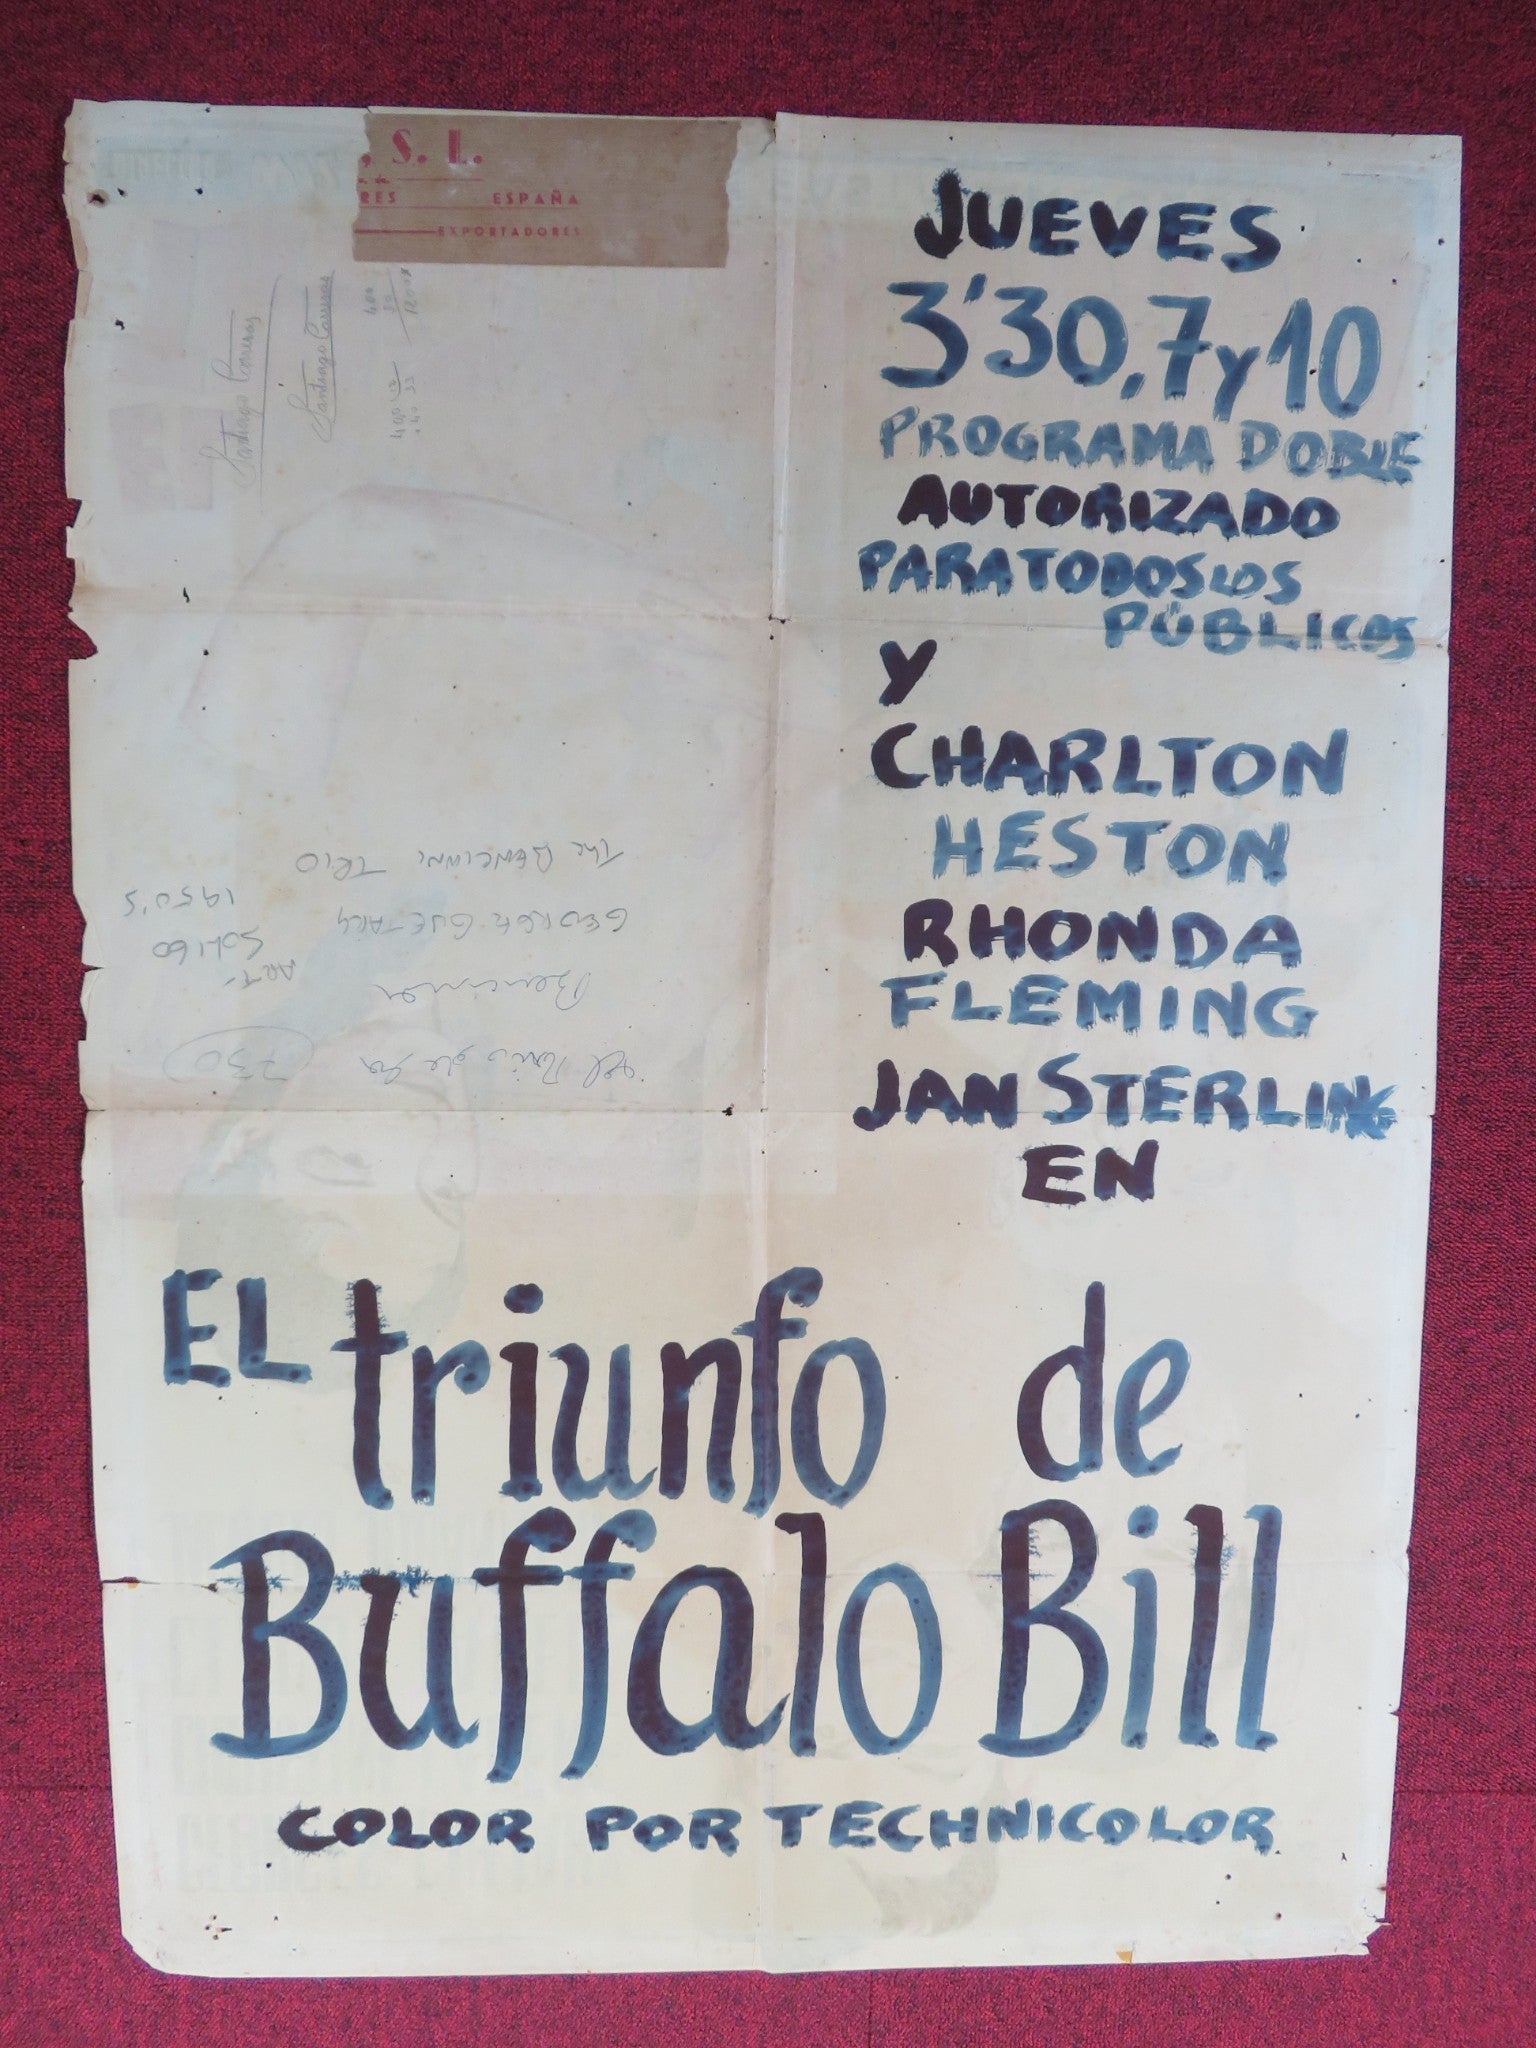 , S. L.
RES ESPAÑA
EXPORTADORES
JUEVES
3'30, 7 y 10
PROGRAMA DOBLE
AUTORIZADO
PARA TODOS LOS
PÚBLICOS
Y
CHARLTON
HESTON
RHONDA
FLEMING
JAN STERLING
EN
EL triunfo de
Buffalo Bill
COLOR POR TECHNICOLOR
Santiago
Santiago
400
THE BENCINI TRIO
GEORGE GUETARY
1950'S
SOLIGO
ART.
730